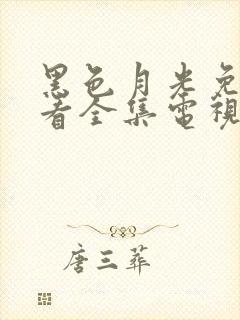 黑色月光免
看全集電視
唐三葬